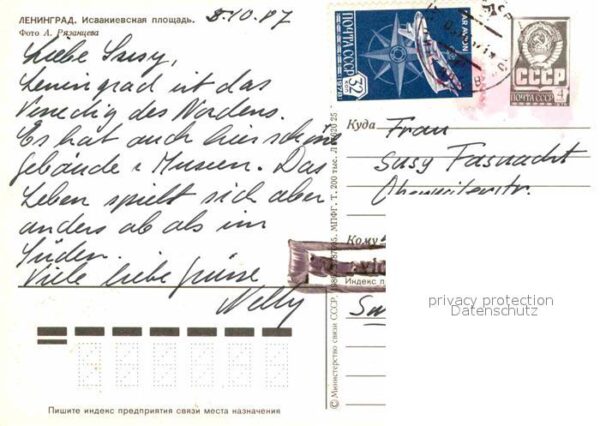 ЛЕНИНГРАД. Исаакиевская площадь.
Фото А. Рязанцева
8.10.87
Liebe Susy,
Leningrad ist das
Venedig des Nordens.
Es hat auch hier schöne
gebäude + Museen. Das
Leben spielt sich aber
anders ab als im
Süden.
Viele liebe grüsse
Nelly
Пишите индекс предприятия связи места назначения
© Министерство связи СССР
МПФГ. Т. 200 тыс.
PAR AVION
ПОЧТА СССР
32
коп
СССР
ПОЧТА СССР
4
Куда
Frau
Susy Fasnacht
Кому
Индекс п
privacy protection
Datenschutz